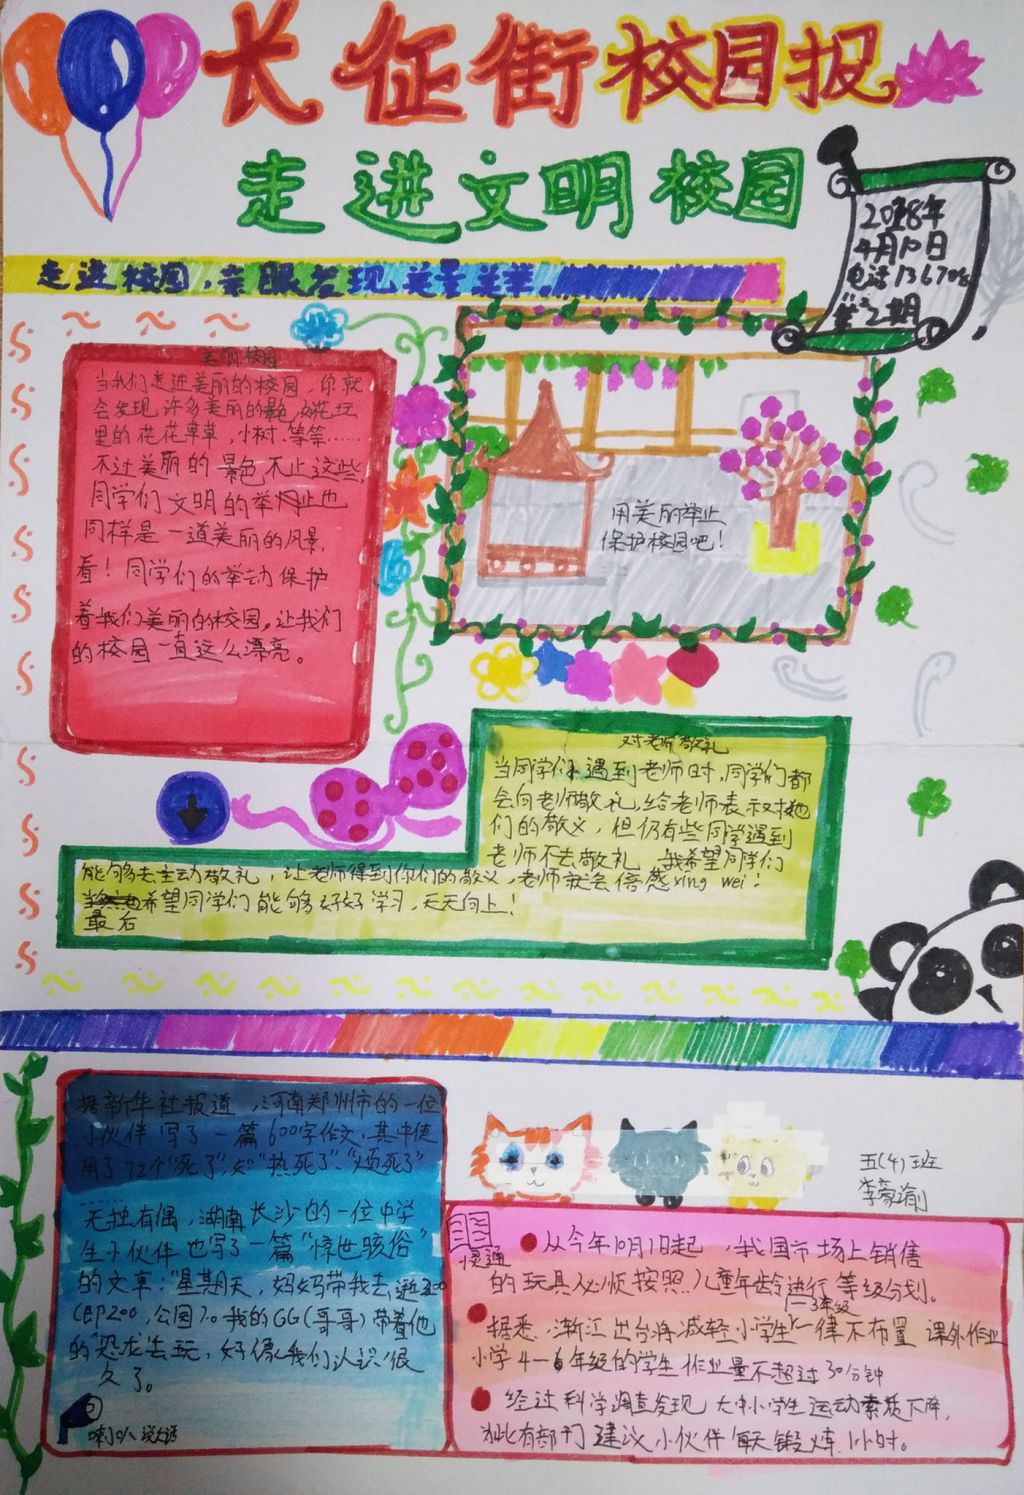 长征街校园报
走进文明校园
2018年
4月10日
电话13670
第2期
走进校园，亲眼发现美景美举。
美丽校园
当我们走进美丽的校园，你就
会发现许多美丽的景色，如花坛
里的花花草草，小树、等等……
不过美丽的景色不止这些，
同学们文明的举止也
同样是一道美丽的风景，
看！同学们的举动保护
着我们美丽的校园。让我们
的校园一直这么漂亮。
用美丽举止
保护校园吧！
对老师敬礼
当同学们遇到老师时，同学们都
会向老师敬礼，给老师表示对他
们的敬义，但仍有些同学遇到
老师不去敬礼，我希望同学们
能够去主动敬礼，让老师得到你们的敬义，老师就会倍感xing wei！
希望同学们能够好好学习，天天向上！
最后
据新华社报道，河南郑州市的一位
小伙伴写了一篇600字作文，其中使
用了72个“死了”如“热死了”、“烦死了”
……
无独有偶，湖南长沙的一位中学
生小伙伴也写了一篇“惊世骇俗”
的文章：“星期天，妈妈带我去逛200
(即200，公园)。我的GG(哥哥)带着他
的“恐龙”去玩，好像我们认识很
久了。
喇叭说话
五(4)班
李豪渝
快通
从今年10月1日起，我国市场上销售
的玩具必须按照儿童年龄进行等级分划。
1-3年级
据悉，浙江出台将减轻小学生一律不布置课外作业
小学4-6年级的学生作业量不超过30分钟
经过科学调查发现大中小学生运动素质下降，
为此有部门建议小伙伴每天锻炼1小时。